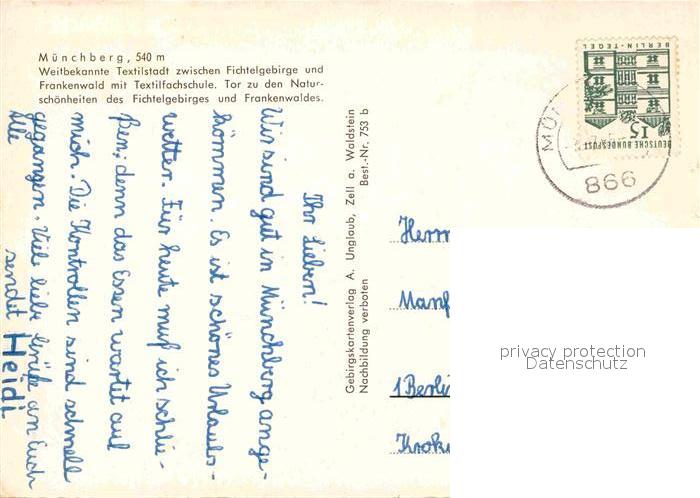 Münchberg, 540 m
Weitbekannte Textilstadt zwischen Fichtelgebirge und
Frankenwald mit Textilfachschule. Tor zu den Natur-
schönheiten des Fichtelgebirges und Frankenwaldes.
Ihr Lieben!
Wir sind gut in Münchberg ange-
kommen. Es ist schönes Urlaubs-
wetter. Für heute muß ich schlie-
ßen, denn das Essen wartet auf
mich. Die Kontrollen sind schnell
gegangen. Viele liebe Grüße an Euch
alle
sendet Heidi
Gebirgskartenverlag A. Unglaub, Zell a. Waldstein
Nachbildung verboten Best.-Nr. 753 b
BERLIN-TEGEL
15
DEUTSCHE BUNDESPOST
MÜN
866
Herrn
Manf
1 Berlin
Kroku
privacy protection
Datenschutz